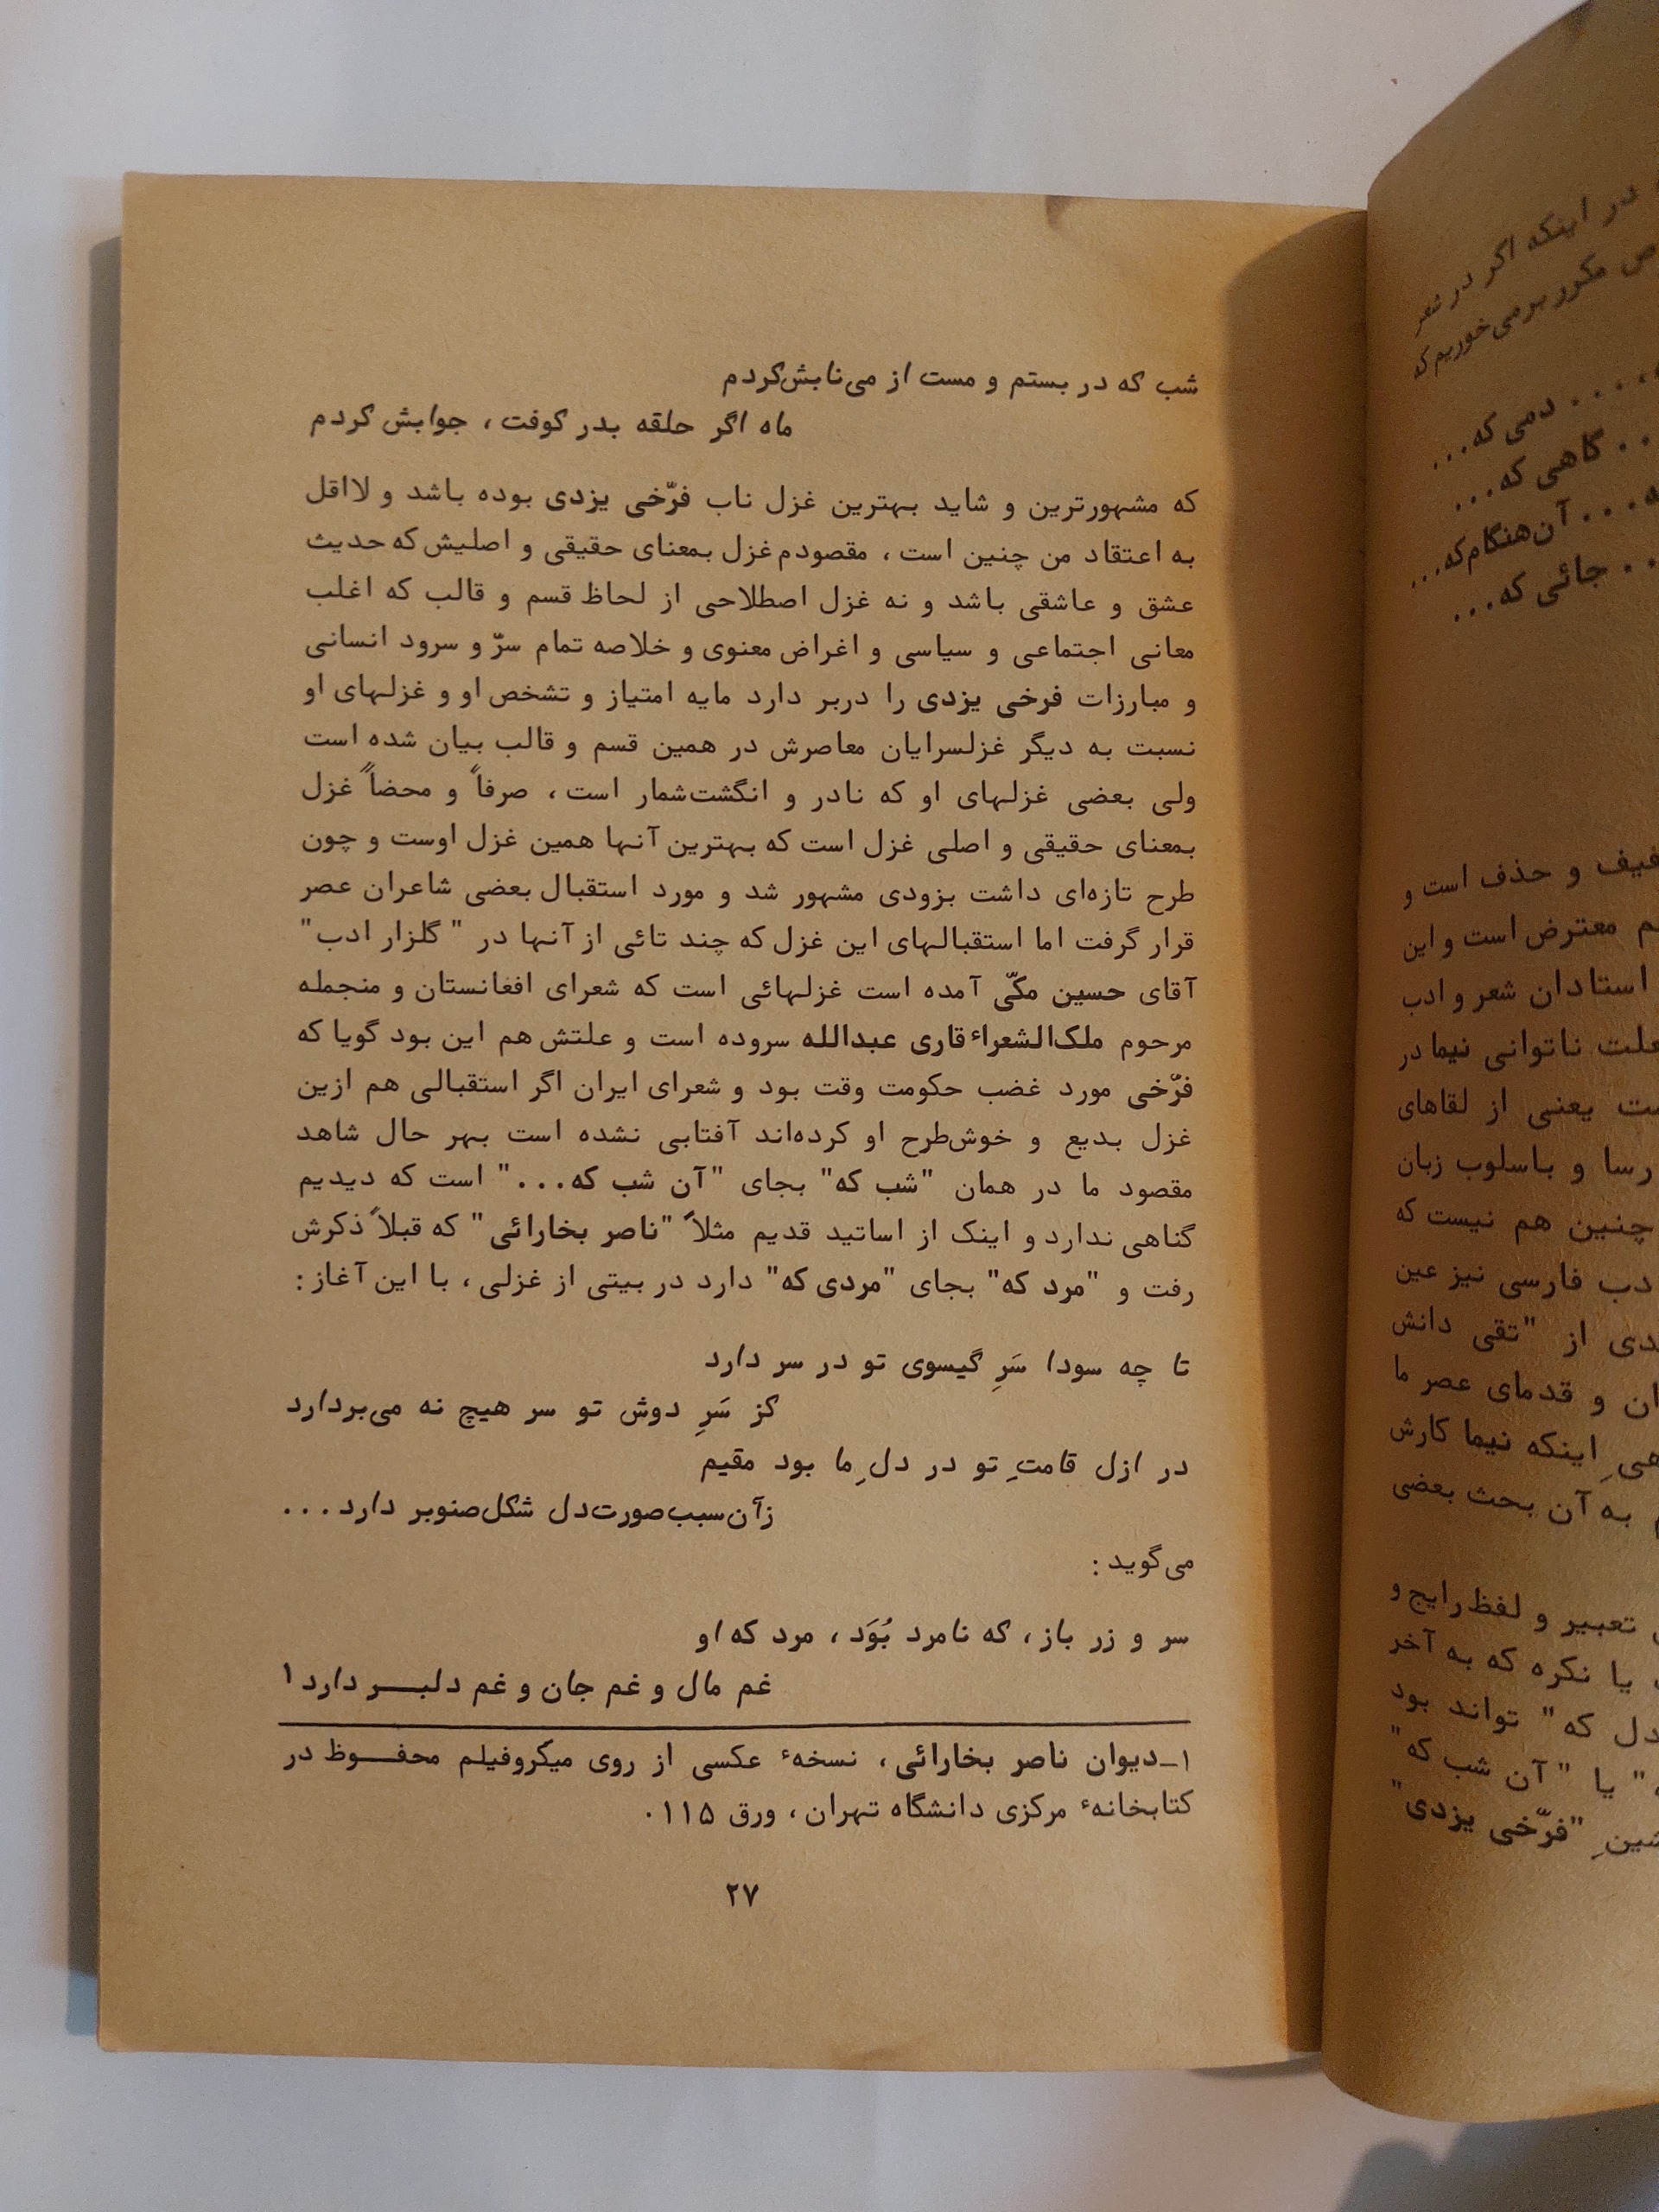 شب که در بستم و مست از می‌نابش‌کردم
ماه اگر حلقه بدر کوفت، جوابش کردم
که مشهورترین و شاید بهترین غزل ناب فرّخی یزدی بوده باشد و لااقل
به اعتقاد من چنین است، مقصودم غزل بمعنای حقیقی و اصلیش که حدیث
عشق و عاشقی باشد و نه غزل اصطلاحی از لحاظ قسم و قالب که اغلب
معانی اجتماعی و سیاسی و اغراض معنوی و خلاصه تمام سرّ و سرود انسانی
و مبارزات فرخی یزدی را دربر دارد مایه امتیاز و تشخص او و غزلهای او
نسبت به دیگر غزلسرایان معاصرش در همین قسم و قالب بیان شده است
ولی بعضی غزلهای او که نادر و انگشت‌شمار است، صرفاً و محضاً غزل
بمعنای حقیقی و اصلی غزل است که بهترین آنها همین غزل اوست و چون
طرح تازه‌ای داشت بزودی مشهور شد و مورد استقبال بعضی شاعران عصر
قرار گرفت اما استقبالهای این غزل که چند تائی از آنها در "گلزار ادب"
آقای حسین مکّی آمده است غزلهائی است که شعرای افغانستان و منجمله
مرحوم ملک‌الشعراء قاری عبدالله سروده است و علتش هم این بود گویا که
فرّخی مورد غضب حکومت وقت بود و شعرای ایران اگر استقبالی هم ازین
غزل بدیع و خوش‌طرح او کرده‌اند آفتابی نشده است بهر حال شاهد
مقصود ما در همان "شب که" بجای "آن شب که..." است که دیدیم
گناهی ندارد و اینک از اساتید قدیم مثلاً "ناصر بخارائی" که قبلاً ذکرش
رفت و "مرد که" بجای "مردی که" دارد در بیتی از غزلی، با این آغاز:
تا چه سودا سَرِ گیسوی تو در سر دارد
کز سَرِ دوش تو سر هیچ نه می‌بردارد
در ازل قامتِ تو در دلِ ما بود مقیم
زآن‌سبب‌صورت‌دل شکل‌صنوبر دارد...
می‌گوید:
سر و زر باز، که نامرد بُوَد، مرد که او
غم مال و غم جان و غم دلبـــر دارد۱
۱_دیوان ناصر بخارائی، نسخهٔ عکسی از روی میکروفیلم محفـــوظ در
کتابخانهٔ مرکزی دانشگاه تهران، ورق ۱۱۵.
۲۷
در اینکه اگر در شعر
مکرر برمی‌خوریم که
.... دمی که...
.. گاهی که...
... آن‌هنگام‌که...
.. جائی که...
و حذف است و
معترض است و این
استادان شعر و ادب
ناتوانی نیما در
یعنی از لقاهای
رسا و باسلوب زبان
چنین هم نیست که
فارسی نیز عین
از "تقی دانش
و قدمای عصر ما
اینکه نیما کارش
به آن بحث بعضی
تعبیر و لفظ رایج و
یا نکره که به آخر
دل که" تواند بود
" یا "آن شب که"
"فرّخی یزدی"